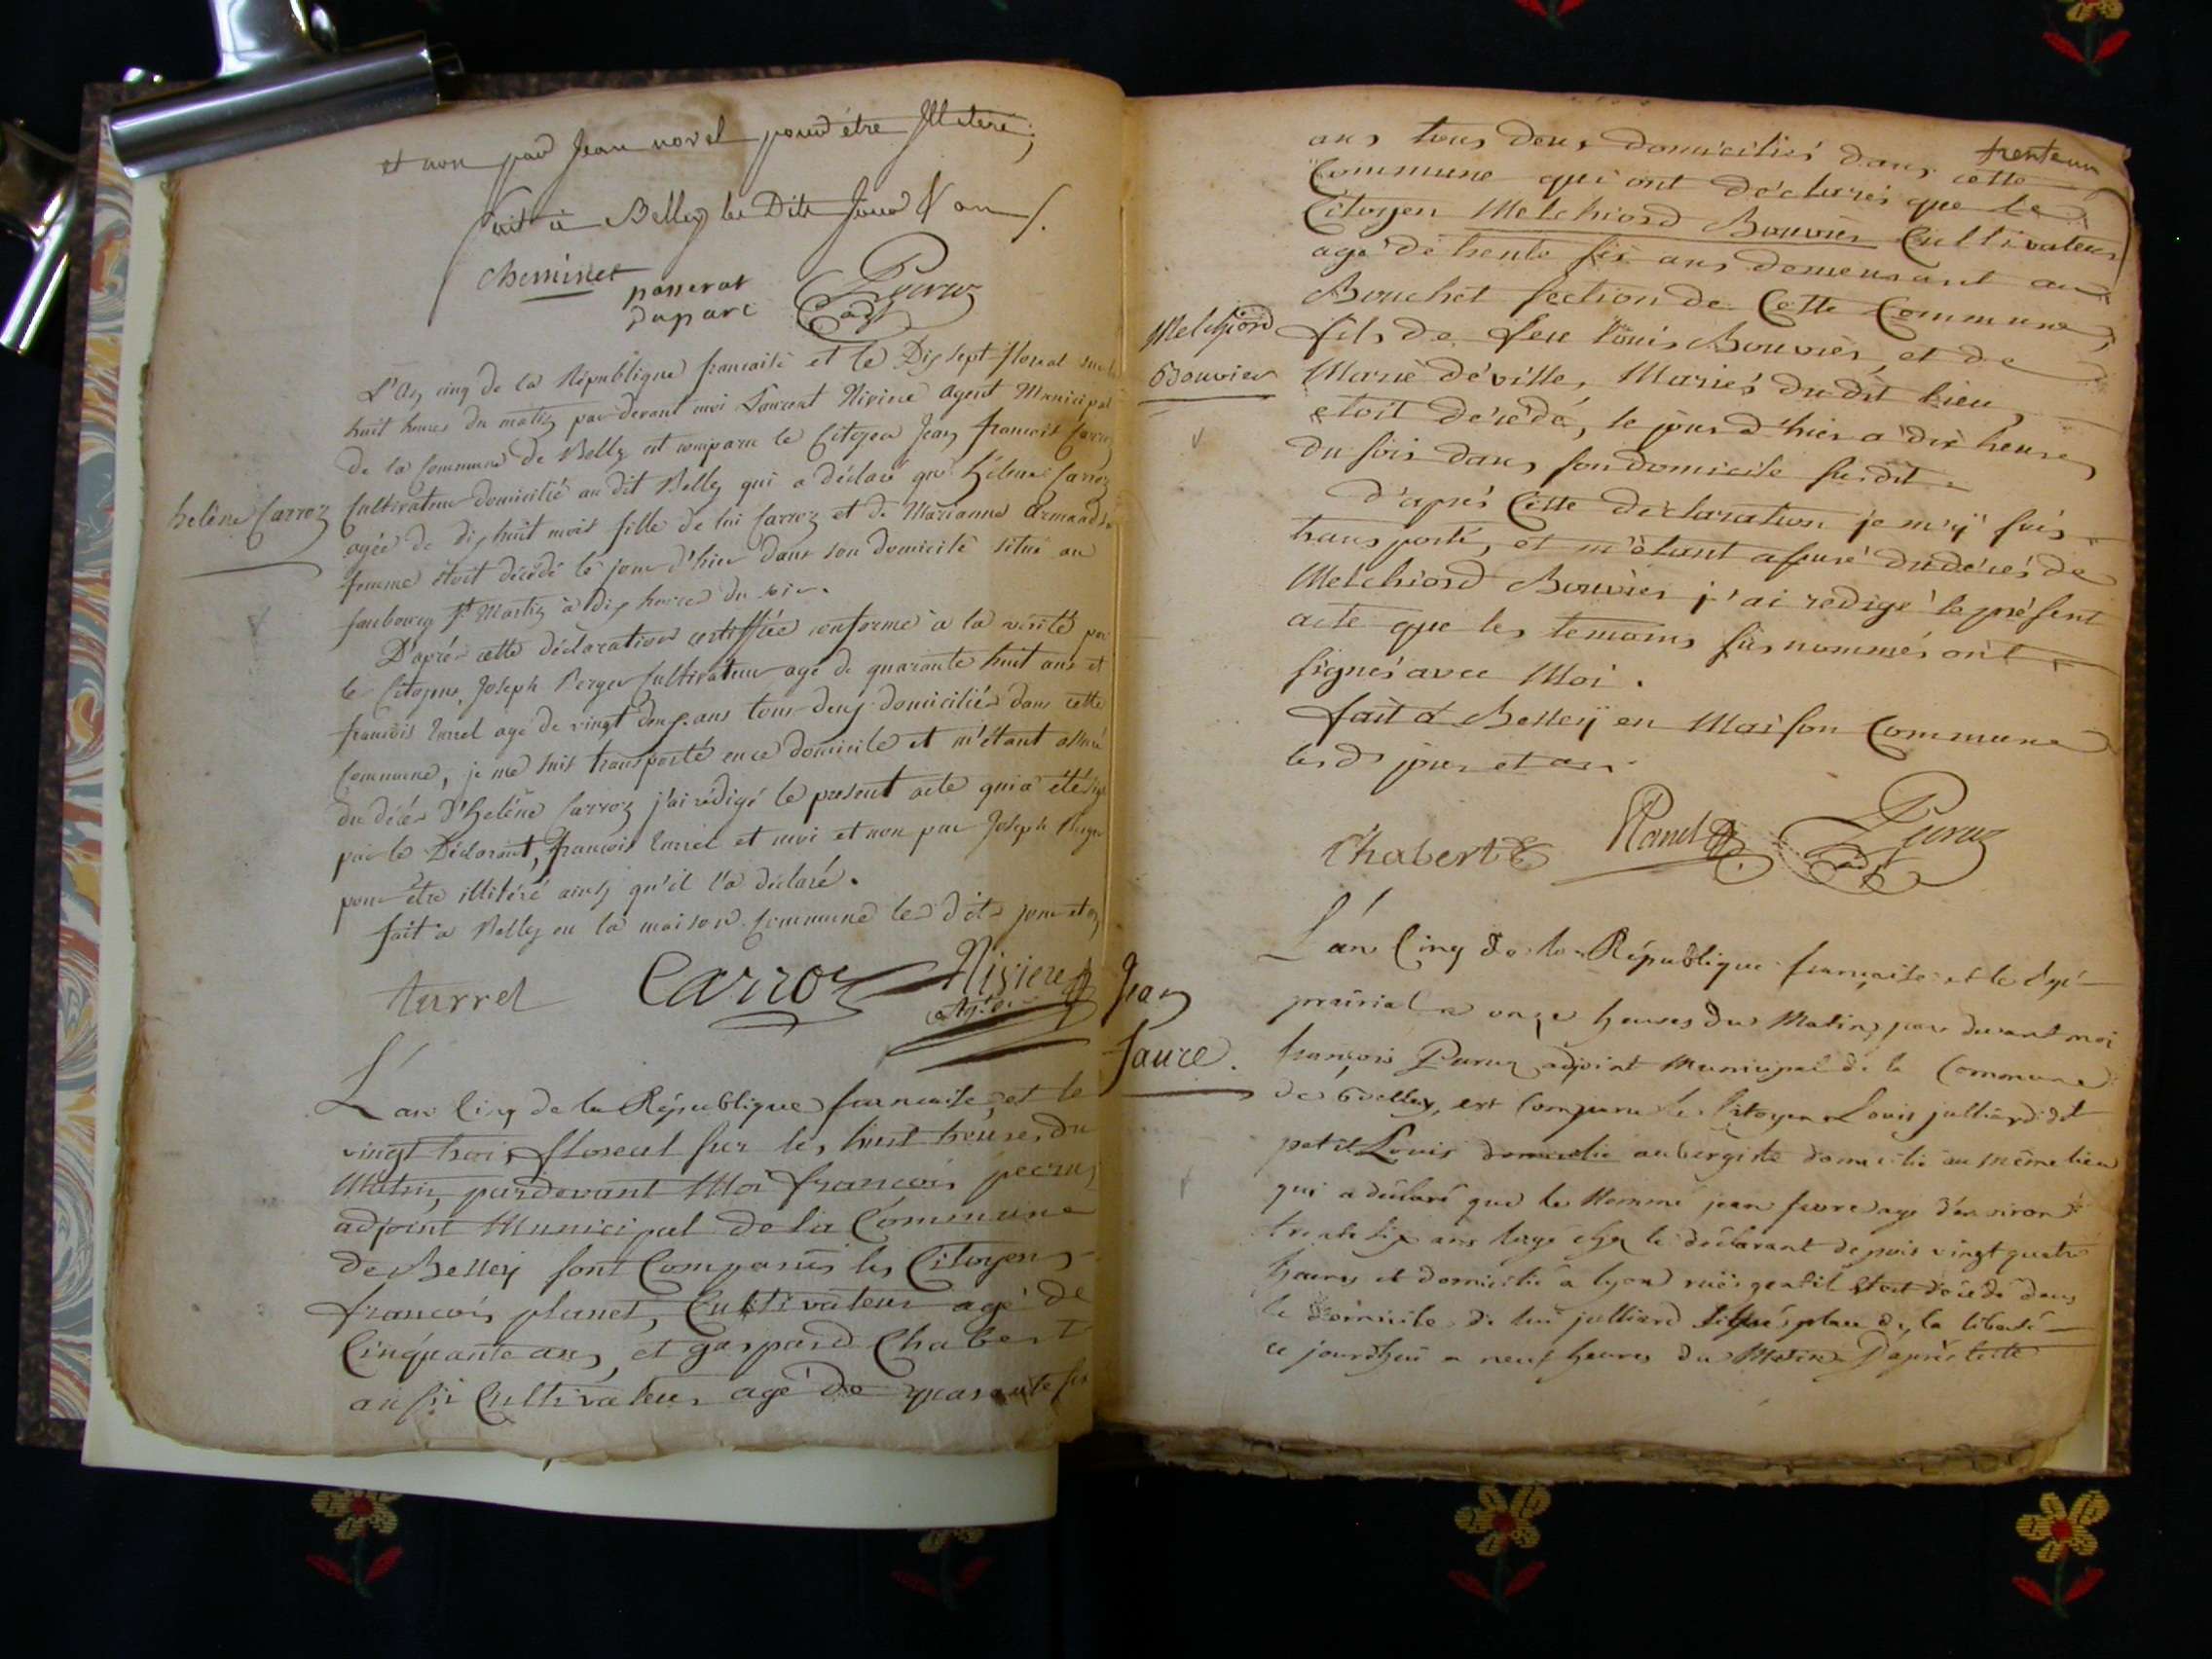 et non par Jean novel pour être Illiteré;
fait à Belley les Dits Jour & an /.
Cheminet
passerat
Duparc
Peeruz
adj
L'An cinq de la République francaise et le Dix sept floreal sur les
huit heures du matin par devant moi Laurent Nivière Agent Municipal
de la Commune de Belley est comparu le Citoyen Jean francois Carroz
Cultivateur domicilié au dit Belley qui a déclaré que hélène Carroz
agée de dix huit mois fille de lui Carroz et de Marianne Armand sa
femme étoit décédé le jour d'hier dans son domicile situé au
faubourg St Martin à dix heures du soir.
helène Carroz
D'après cette déclaration certiffiée conforme à la vérité par
le Citoyens Joseph Berger Cultivateur agé de quarante huit ans et
francois turrel agé de vingt deux ans tous deux domiciliés dans cette
Commune, je me suis transporté en ce domicile et m'étant assuré
du décès d'helène Carroz j'ai rédigé le present acte qui a été sign
par le Déclarant, francois turrel et moi et non par Joseph Berger
pour être illitéré ainsy qu'il l'a déclaré.
fait à Belley en la maison Commune les dits jour et an
turrel
Carroz
Niviere
Agt
L'an Cinq de la République francaise, et le
vingt trois floreal sur les huit heures du
Matin, pardevant Moi francois peeruz
adjoint Municipal de la Commune
de Belley sont Comparus les Citoyens
francois planet, Cultivateur agé de
Cinquante ans, et gaspard Chabert
aussi Cultivateur agé de quarante six
trente un
ans tous deux domiciliés dans cette
Commune qui ont déclarés que le
Citoyen Melchiord Bouvier Cultivateur
agé de trente six ans demeurant au
Bouchet section de Cette Commune,
fils de feu Louis Bouvier, et de
Marie déville, Mariés du dit lieu,
etoit décédé, le jour d'hier a dix heures
du soir dans son domicile susdit.
Melchiord
Bouvier
d'après Cette déclaration je m'y suis
transporté, et m'étant assuré du décés de
Melchiord Bouvier j'ai redigé le présent
acte que les temoins susnommés ont
signés avec Moi.
fait à Belley en Maison Commune
lesd jour et an.
Chabert
Planet
Peeruz
adj
L'an Cinq de la République française et le
prairial a onze heures du Matin par devant moi
françois Peeruz adjoint Municipal de la Commune
de Belley, est Comparu le Citoyen Louis julliard dit
petit Louis domicilié aubergiste domicilié au même lieu
qui a déclaré que le Nommé jean favre agé d'environ
trente six ans logé chez le déclarant depuis vingt quatre
heures et domicilié à lyon étoit décédé dans
le domicile de lui julliard place de la liberté
ce jourd'hui a neuf heures du Matin D'après cette
Jean
faure.